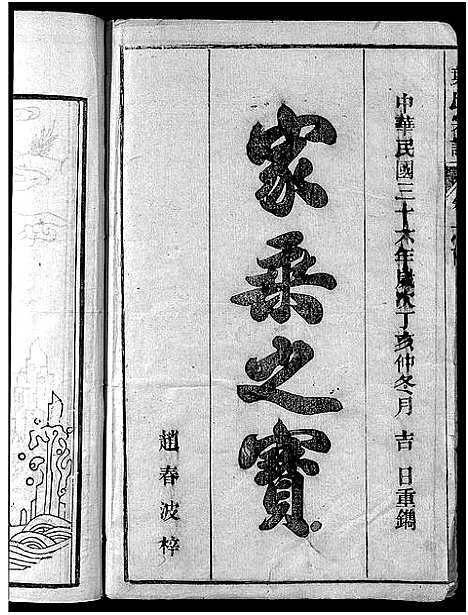 中華民國三十六年歲次丁亥仲冬月 吉日重鐫
家乘之寶
趙春波梓